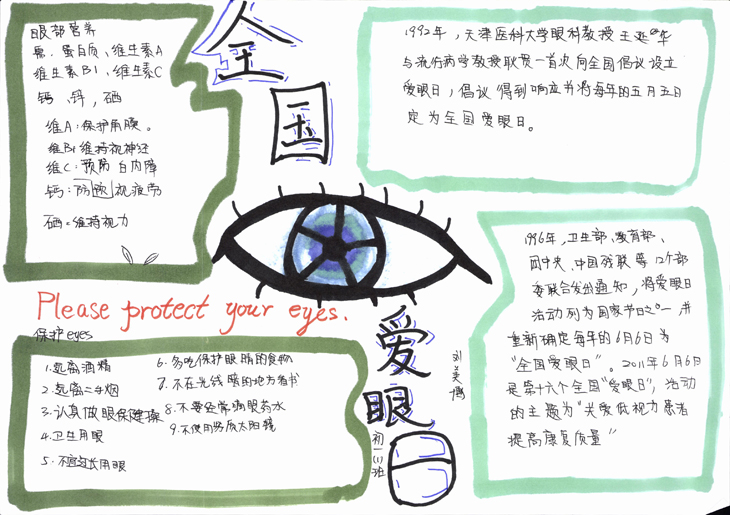 全国
爱眼日
眼部营养
蛋白质、维生素A
维生素B1、维生素C
钙、锌,硒
维A:保护角膜。
维B1维持视神经
维C:预防白内障
钙:防预视疲劳
硒=维持视力
1992年,天津医科大学眼科教授王延华
与流行病学教授耿贯一首次向全国倡议设立
爱眼日,倡议得到响应并将每年的五月五日
定为全国爱眼日。
Please protect your eyes.
保护eyes
1.远离酒精
2.远离二手烟
3.认真做眼保健操
4.卫生用眼
5.不宜过长用眼
6.多吃保护眼睛的食物
7.不在光线暗的地方看书
8.不要经常滴眼药水
9.不使用劣质太阳镜
1996年,卫生部、教育部、
团中央、中国残联等12个部
委联合发出通知,将爱眼日
活动列为国家节日之一,并
重新确定每年的6月6日为
“全国爱眼日”。2011年6月6日
是第十六个全国“爱眼日”,活动
的主题为“关爱低视力患者
提高康复质量”
初一(1)班